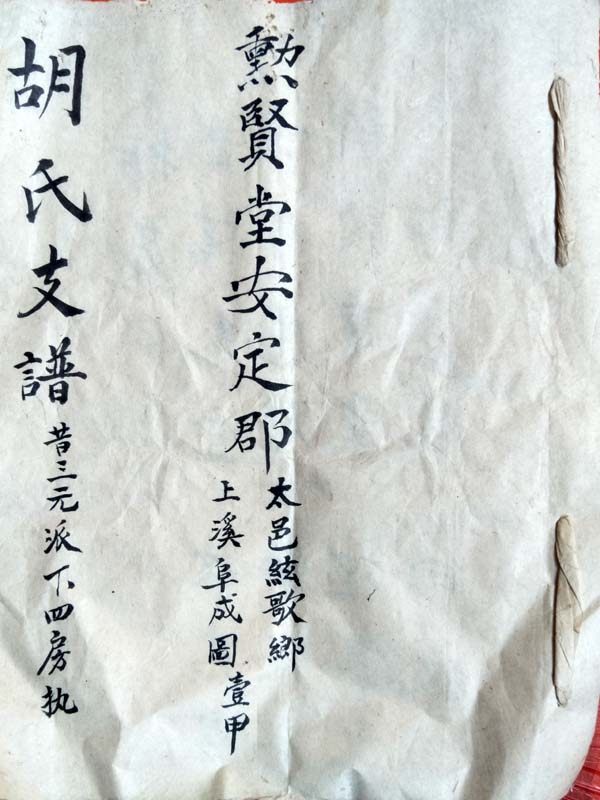 勲賢堂安定郡
太邑絃歌鄉
上溪阜成圖壹甲
胡氏支譜
昔三元派下四房执